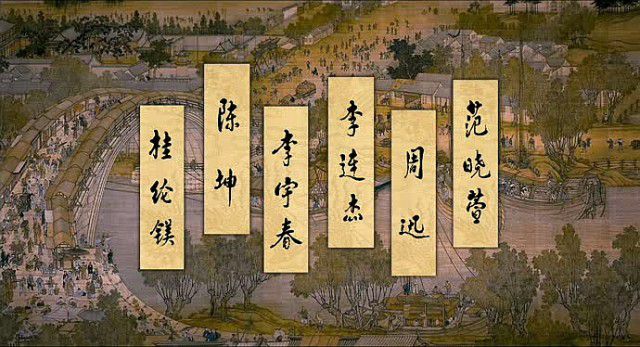 桂纶镁
陈坤
李宇春
李连杰
周迅
范晓萱